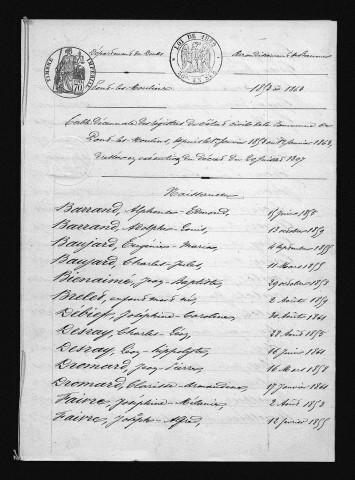 TIMBRE IMPERIAL
70
LOI DE 1872
Département du Doubs
Pont-les-Moulins
1853 à 1862
Table Décennale des registres de l'état civil de la Commune de
Pont-les-Moulins, depuis le 1er janvier 1853 au 1er janvier 1863,
dressée en exécution du décret du 20 juillet 1807
Naissances
Barrand, Alphonse-Edmond, 15 juin
Barrand, Adolphe-Louis, 13 octobre 1859
Baujard, Eugénie-Maria, 4 septembre 1855
Baujard, Charles-Jules, 11 Mars
Bienaimé, Jean-Baptiste, 29 octobre 1853
Brelet, enfant mort né, 2 Août 1859
Débief, Joséphine-Caroline, 30 Août 1861
Desray, Charles-Léon, 28 Août
Desray, Léon-hippolyte, 16 juin 1861
Dromard, Jean-Pierre, 16 Mars 1858
Dromard, Clarisse-Amandine, 17 janvier 1861
Faivre, Joséphine-Mélanie, 2 Août 1853
Faivre, Joseph-Alfred, 12 février 1855